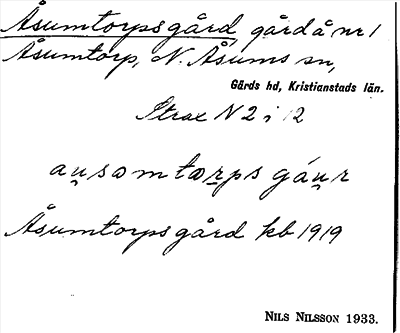 Åsumtorpsgård, gård å nr 1
Åsumtorp, N. Åsums sn,
Gärds hd, Kristianstads län.
Strax N 2 i 12
au̯somtorps gáu̯r
Åsumtorpsgård kb 1919
NILS NILSSON 1933.